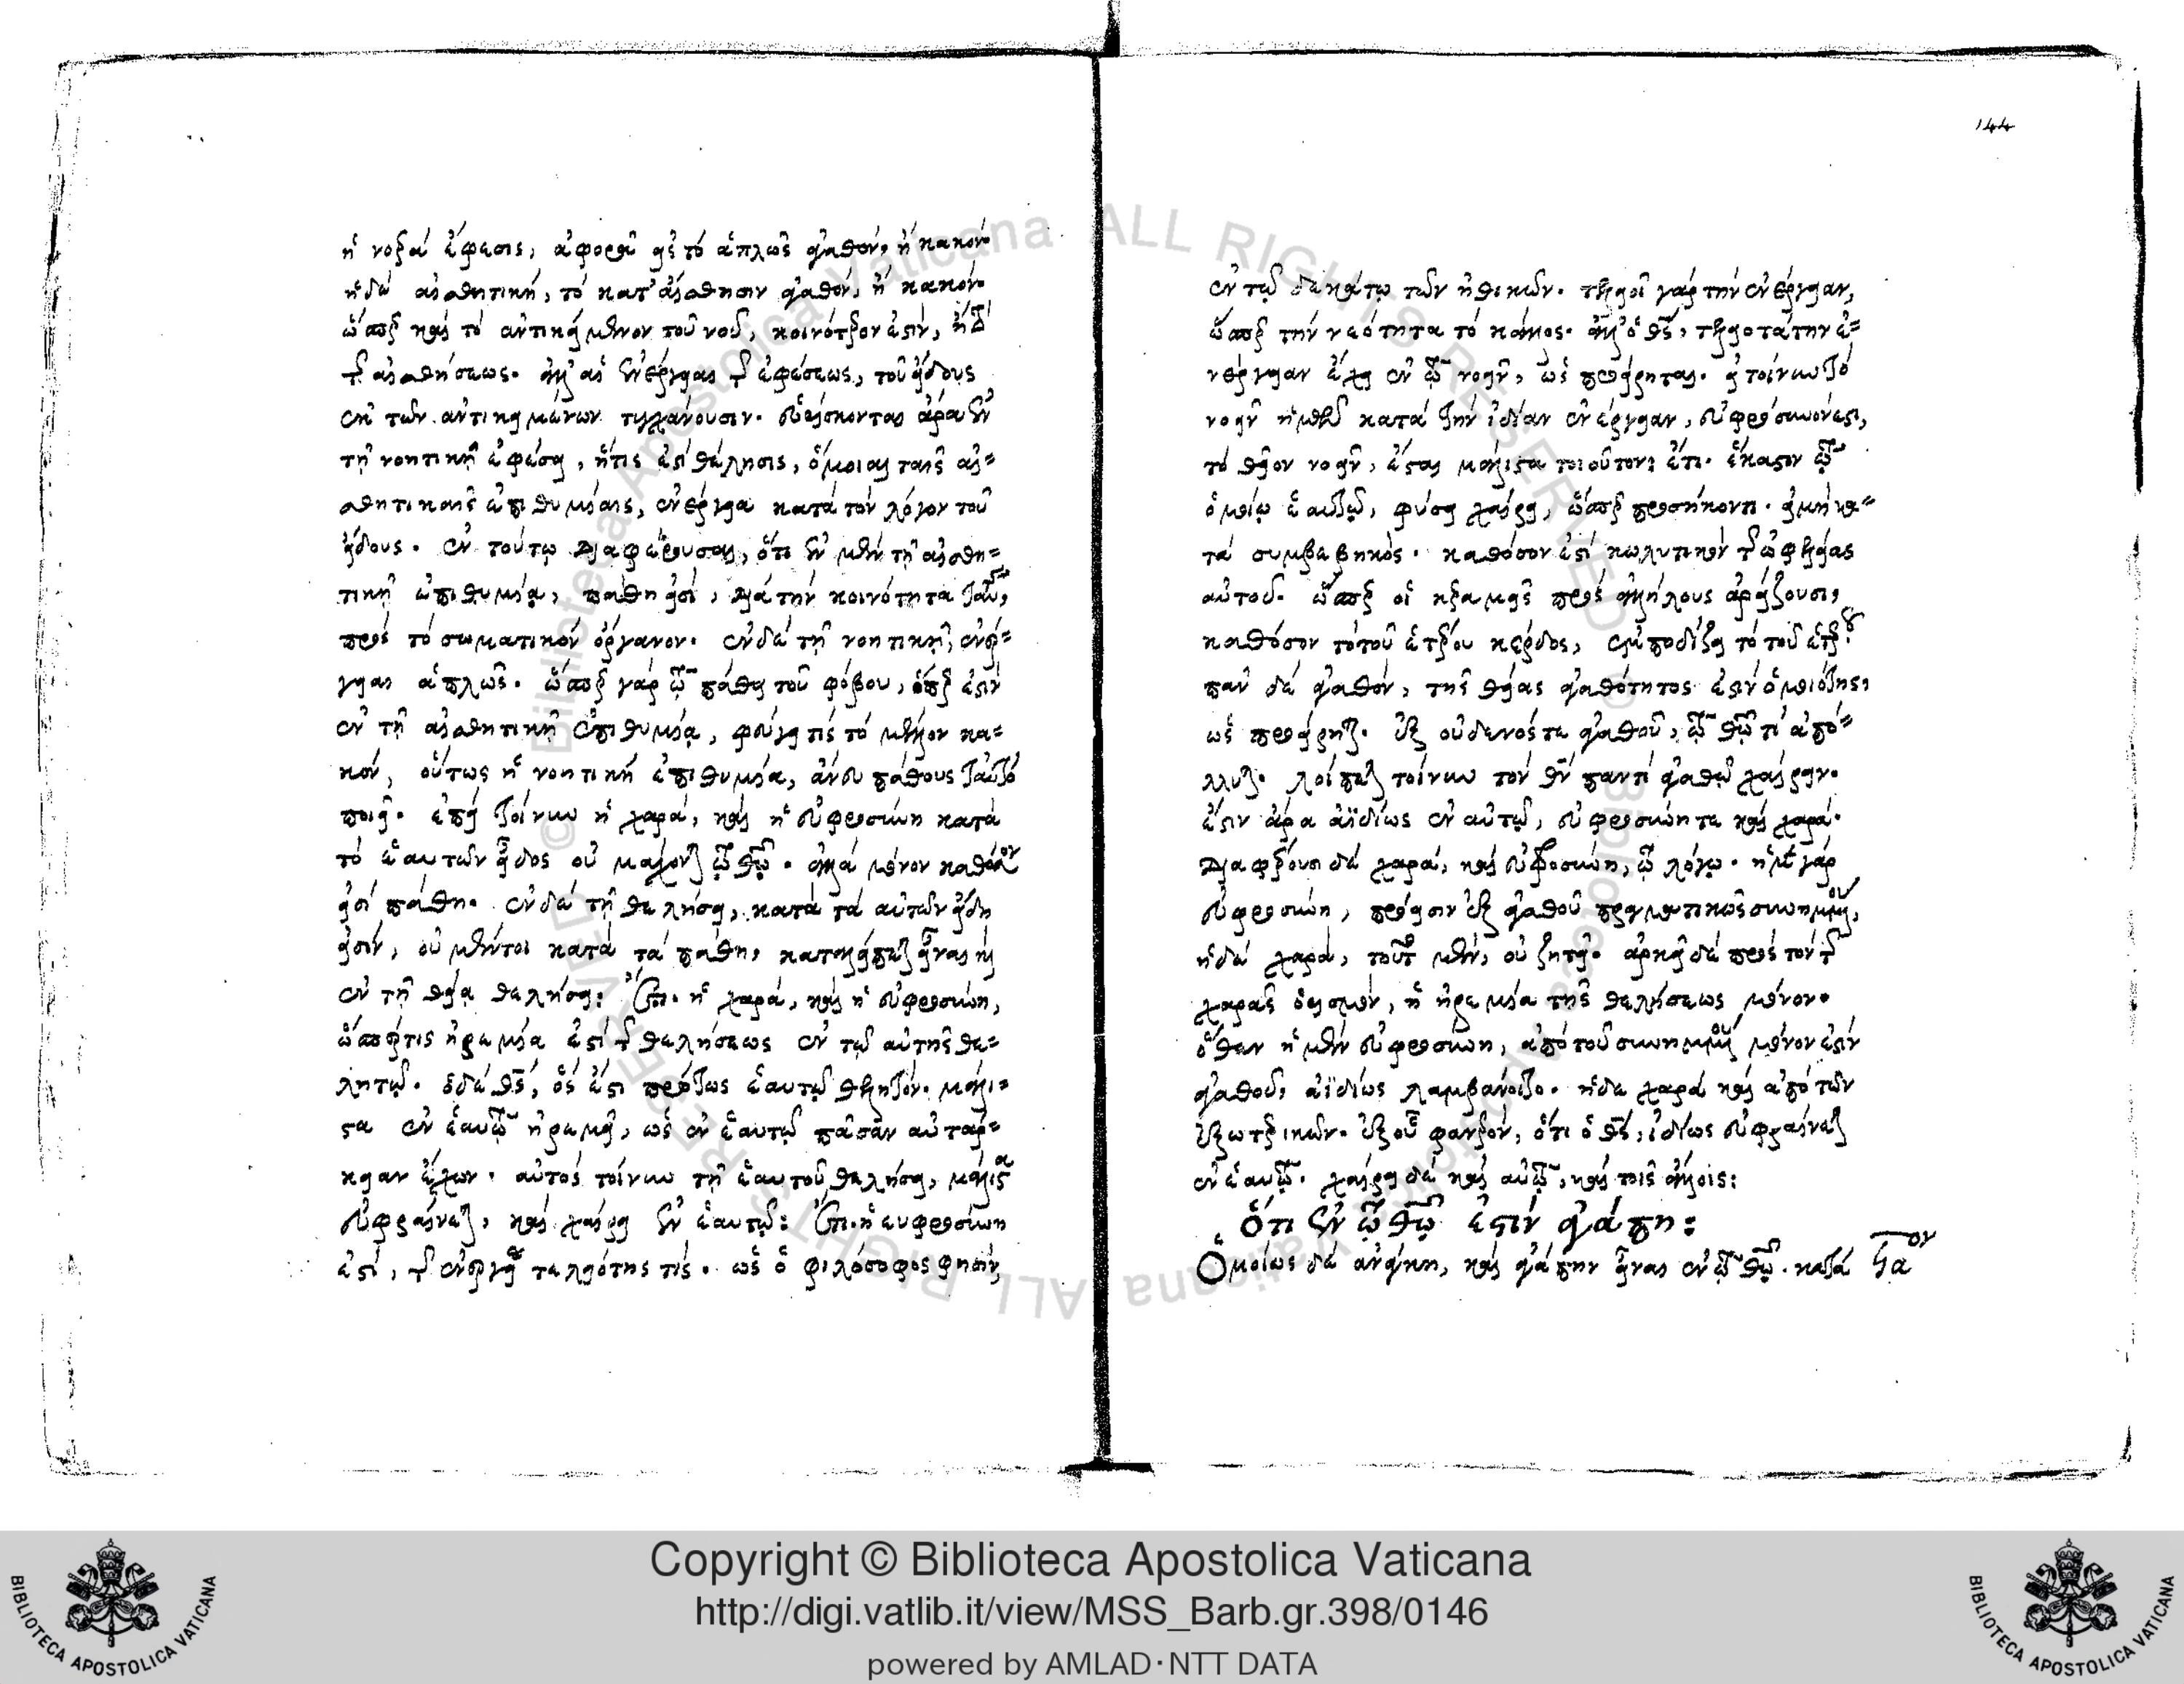 144
ἡ νοερὰ ἔφεσις, ἀφορᾷ εἰς τὸ ἁπλῶς ἀγαθὸν, ἢ κακόν·
ἡ δὲ αἰσθητικὴ, τὸ κατ' αἴσθησιν ἀγαθὸν, ἢ κακόν·
ὥσπερ καὶ τὸ ἀντικείμενον τοῦ νοῦ, κοινότερον ἐστὶν, ἢ τὸ
τῆς αἰσθήσεως. ἀλλ' αἱ ἐνέργειαι τῆς ἐφέσεως, τοῦ εἴδους
ἐκ τῶν ἀντικειμένων τυγχάνουσιν. εὑρίσκονται ἄρα ἐν
τῇ νοητικῇ ἐφέσει, ἥτις ἐστὶ θέλησις, ὅμοιαι ταῖς αἰ=
σθητικαῖς ἐπιθυμίαις, ἐνέργειαι κατὰ τὸν λόγον τοῦ
εἴδους. ἐν τούτῳ διαφέρουσαι, ὅτι ἐν μὲν τῇ αἰσθη=
τικῇ ἐπιθυμίᾳ, πάθη εἰσὶ, διὰ τὴν κοινότητα ταύτης,
πρὸς τὸ σωματικὸν ὄργανον. ἐν δὲ τῇ νοητικῇ, ἐνέρ=
γειαι ἁπλῶς. ὥσπερ γὰρ τῷ πάθει τοῦ φόβου, ὅπερ ἐστὶν
ἐν τῇ αἰσθητικῇ ἐπιθυμίᾳ, φεύγει τίς τὸ μέλλον κα=
κὸν, οὕτως ἡ νοητικὴ ἐπιθυμία, ἄνευ πάθους ταὐτὸ
ποιεῖ. ἐπεὶ τοίνυν ἡ χαρὰ, καὶ ἡ εὐφροσύνη κατὰ
τὸ ἑαυτῶν εἶδος οὐ μάχονται τῷ θεῷ. ἀλλὰ μόνον καθόσον
εἰσὶ πάθη. ἐν δὲ τῇ θελήσει, κατὰ τὰ αὐτῶν εἴδη
εἰσὶν, οὐ μέντοι κατὰ τὰ πάθη, καταλείπεται εἶναι καὶ
ἐν τῇ θείᾳ θελήσει: Ἔτι. ἡ χαρὰ, καὶ ἡ εὐφροσύνη,
ὡσπερεί τις ἠρεμία ἐστὶ τῆς θελήσεως ἐν τῷ αὐτῆς θε=
λητῷ. ὁ δὲ θεὸς, ὅς ἐστι πρώτως ἑαυτῷ θελητὸν. μάλι=
στα ἐν ἑαυτῷ ἠρεμεῖ, ὡς ἐν ἑαυτῷ πᾶσαν αὐτάρ=
κειαν ἔχων. αὐτὸς τοίνυν τῇ ἑαυτοῦ θελήσει, μάλιστα
εὐφραίνεται, καὶ χαίρει ἐν ἑαυτῷ: Ἔτι. ἡ εὐφροσύνη
ἐστὶ, τῆς ἐνεργείας τελειότης τίς. ὡς ὁ φιλόσοφος φησὶν
ἐν τῷ δεκάτῳ τῶν ἠθικῶν. τελειοῖ γὰρ τὴν ἐνέργειαν,
ὥσπερ τὴν νεότητα τὸ κάλλος. ἀλλ' ὁ θεὸς, τελειοτάτην ἐ=
νέργειαν ἔχει ἐν τῷ νοεῖν, ὡς προείρηται. εἰ τοίνυν τὸ
νοεῖν ἡμῶν κατὰ τὴν ἰδίαν ἐνέργειαν, εὐφρόσυνόν ἐστι,
τὸ θεῖον νοεῖν, ἔσται μάλιστα τοιοῦτον: ἔτι. ἕκαστον τῷ
ὁμοίῳ ἑαυτῷ, φύσει χαίρει, ὥσπερ προσήκοντι. εἰ μὴ κα=
τὰ συμβεβηκός. καθόσον ἐστὶ κωλυτικὸν τῆς ὠφελείας
αὐτοῦ. ὥσπερ οἱ κεραμεῖς πρὸς ἀλλήλους ἐρίζουσι,
καθόσον τὸ τοῦ ἑτέρου κέρδος, ἐμποδίζει τὸ τοῦ ἑτέρου.
πᾶν δὲ ἀγαθὸν, τῆς θείας ἀγαθότητος ἐστὶν ὁμοιότης,
ὡς προείρηται. ἐξ οὐδενός τε ἀγαθοῦ, τῷ θεῷ τὶ ἀπό=
λλυται. λοίπεται τοίνυν τὸν θεὸν παντὶ ἀγαθῷ χαίρειν.
ἔστιν ἄρα ἀϊδίως ἐν αὐτῷ, εὐφροσύνη τε καὶ χαρά.
διαφέρουσι δὲ χαρὰ, καὶ εὐφροσύνη, τῷ λόγῳ. ἡ μὲν γὰρ
εὐφροσύνη, πρόεισιν ἐξ ἀγαθοῦ πραγματικῶς συνημμένου,
ἡ δὲ χαρὰ, τοῦτο μὲν, οὐ ζητεῖ. ἀρκεῖ δὲ πρὸς τὸν τῆς
χαρᾶς ὁρισμὸν, ἡ ἠρεμία τῆς θελήσεως μόνον.
ὅθεν ἡ μὲν εὐφροσύνη, ἀπὸ τοῦ συνημμένου μόνον ἐστὶν
ἀγαθοῦ, ἀϊδίως λαμβάνοιτο. ἡ δὲ χαρὰ καὶ ἀπὸ τῶν
ἐξωτερικῶν. ἐξ οὗ φανερὸν, ὅτι ὁ θεὸς, ἰδίως εὐφραίνεται
ἐν ἑαυτῷ. χαίρει δὲ καὶ αὐτῷ, καὶ τοῖς ἄλλοις:
Ὅτι ἐν τῷ θεῷ ἐστὶν ἀγάπη:
Ὁμοίως δὲ ἀνάγκη, καὶ ἀγάπην εἶναι ἐν τῷ θεῷ. κατὰ
Copyright © Biblioteca Apostolica Vaticana
http://digi.vatlib.it/view/MSS_Barb.gr.398/0146
powered by AMLAD·NTT DATA